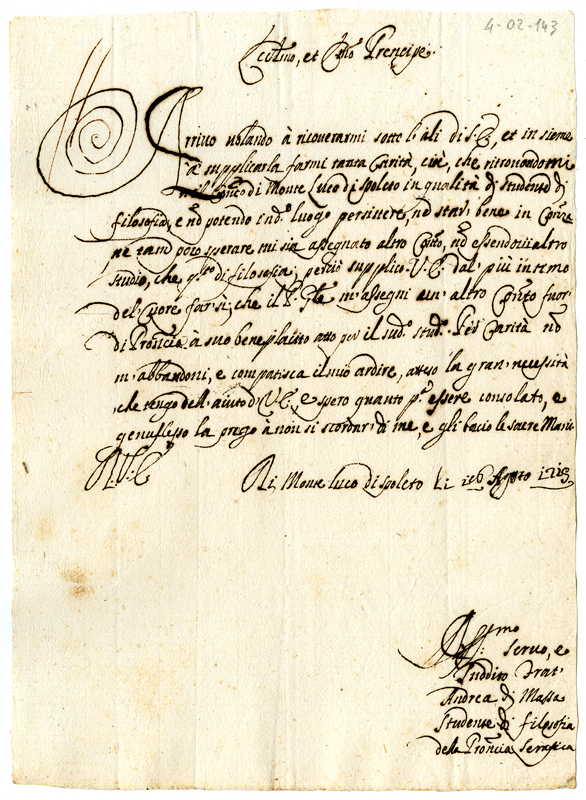 4-02-143
et Prencipe.
Arrivo volando à ricoverarmi sotto l'ali di S. E, et insieme
à supplicarla farmi tanta Carità, cioè, che ritrovandomi
di Monte Luco di Spoleto in qualità di studente di
filosofia, e nõ potendo in dº luogo persistere, nõ star bene in
ne tam poco sperare mi sia assegnato altro nõ essendovi altro
studio, che di filosofia; perciò supplico V. E. dal più intimo
del Cuore farsi, che il m'assegni un altro fuor
di Proñcia à suo beneplacito atto per il sudº studº. Per Carità nõ
m'abbandoni, e compatisca il mio ardire, atteso la gran necessità
che tengo dell'aiuto d V. E, e spero quanto pª essere consolato, e
genuflesso la prego à non si scordar di me, e gli bacio le sacre Mani
D. V. E Di Monte luco di spoleto li 16 Agosto 1713
servo, e
suddito Frat'
Andrea di Massa
Studente di filosofia
della Proñcia Serafica